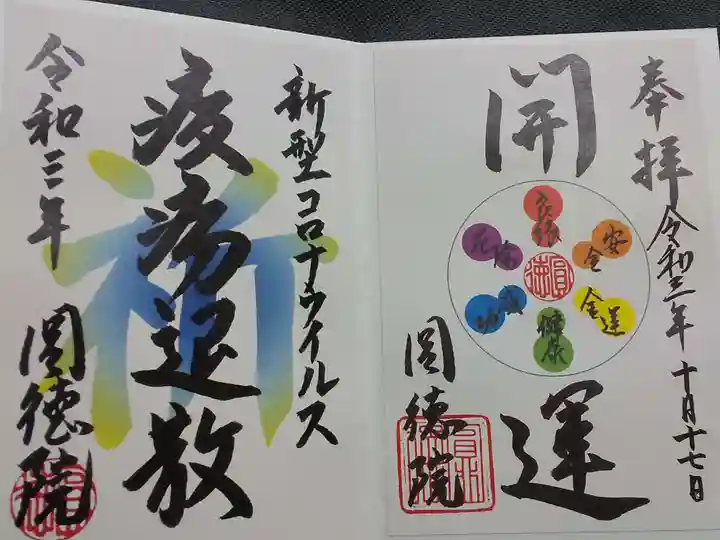 奉拝
令和三年
十月十七日
開運
良縁
安全
金運
健康
成功
厄除
圓徳
圓徳院
新型コロナウイルス
疫病退散
祈
令和三年
圓徳院